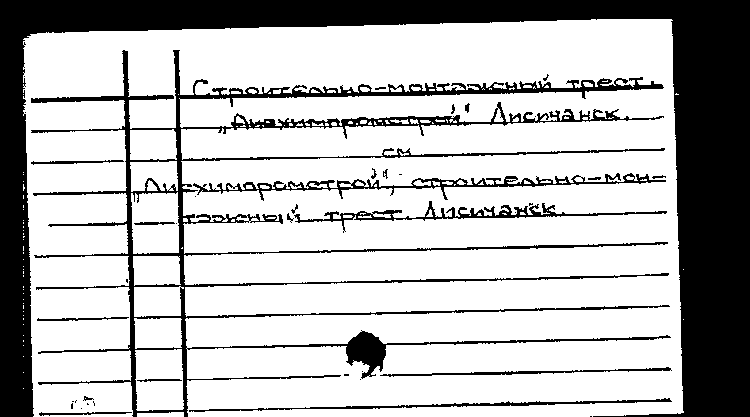 Строительно-монтажный трест.
„Лисхимпромстрой". Лисичанск.
см
„Лисхимпромстрой", строительно-мон-
тажный трест. Лисичанск.